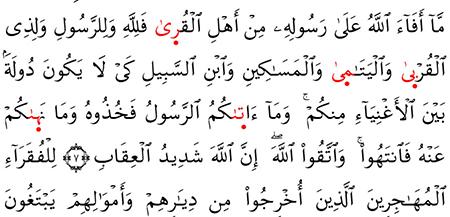 مَّآ أَفَآءَ ٱللَّهُ عَلَىٰ رَسُولِهِۦ مِنْ أَهْلِ ٱلْقُرىٰ فَلِلَّهِ وَلِلرَّسُولِ وَلِذِى
ٱلْقُرْبىٰ وَٱلْيَتَٰمىٰ وَٱلْمَسَٰكِينِ وَٱبْنِ ٱلسَّبِيلِ كَىْ لَا يَكُونَ دُولَةَۢ
بَيْنَ ٱلْأَغْنِيَآءِ مِنكُمْ ۚ وَمَآ ءَاتىٰكُمُ ٱلرَّسُولُ فَخُذُوهُ وَمَا نَهىٰكُمْ
عَنْهُ فَٱنتَهُوا۟ ۚ وَٱتَّقُوا۟ ٱللَّهَ ۖ إِنَّ ٱللَّهَ شَدِيدُ ٱلْعِقَابِ ﴿٧﴾ لِلْفُقَرَآءِ
ٱلْمُهَٰجِرِينَ ٱلَّذِينَ أُخْرِجُوا۟ مِن دِيَٰرِهِمْ وَأَمْوَٰلِهِمْ يَبْتَغُونَ